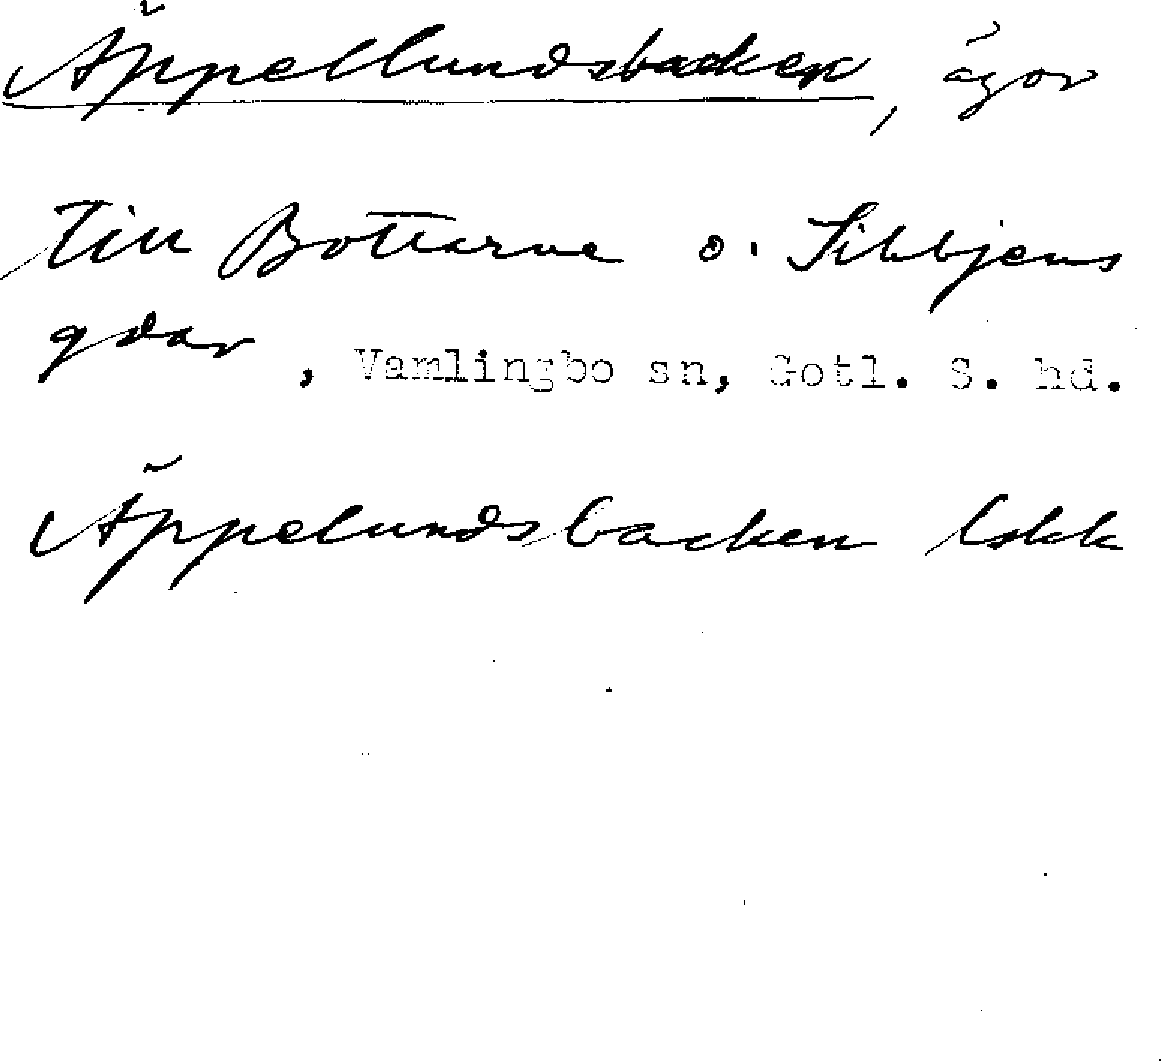 Äppellundsbacken, ägor
till Bottarve o. Sibbjens
gdar, Vamlingbo sn, Gotl. S. hd.
Äppelundsbacken Lskk